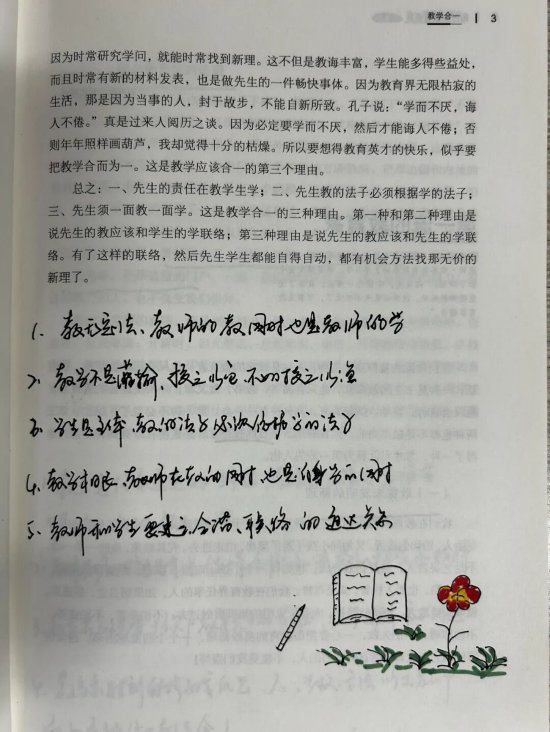 教学合一 | 3
因为时常研究学问，就能时常找到新理。这不但是教诲丰富，学生能多得些益处，
而且时常有新的材料发表，也是做先生的一件畅快事体。因为教育界无限枯寂的
生活，那是因为当事的人，封于故步，不能自新所致。孔子说：“学而不厌，诲
人不倦。”真是过来人阅历之谈。因为必定要学而不厌，然后才能诲人不倦；否
则年年照样画葫芦，我却觉得十分的枯燥。所以要想得教育英才的快乐，似乎要
把教学合而为一。这是教学应该合一的第三个理由。
总之：一、先生的责任在教学生学；二、先生教的法子必须根据学的法子；
三、先生须一面教一面学。这是教学合一的三种理由。第一种和第二种理由是
说先生的教应该和学生的学联络；第三种理由是说先生的教应该和先生的学联
络。有了这样的联络，然后先生学生都能自得自动，都有机会方法找那无价的
新理了。
1、教无定法、教师的教同时也是教师的学
2、教学不是灌输，
3、学生是主体，教的法子必须依据学的法子
4、教学相长、教师在教的同时，也是自身学的同时
5、教师和学生要建立合谐、联络的